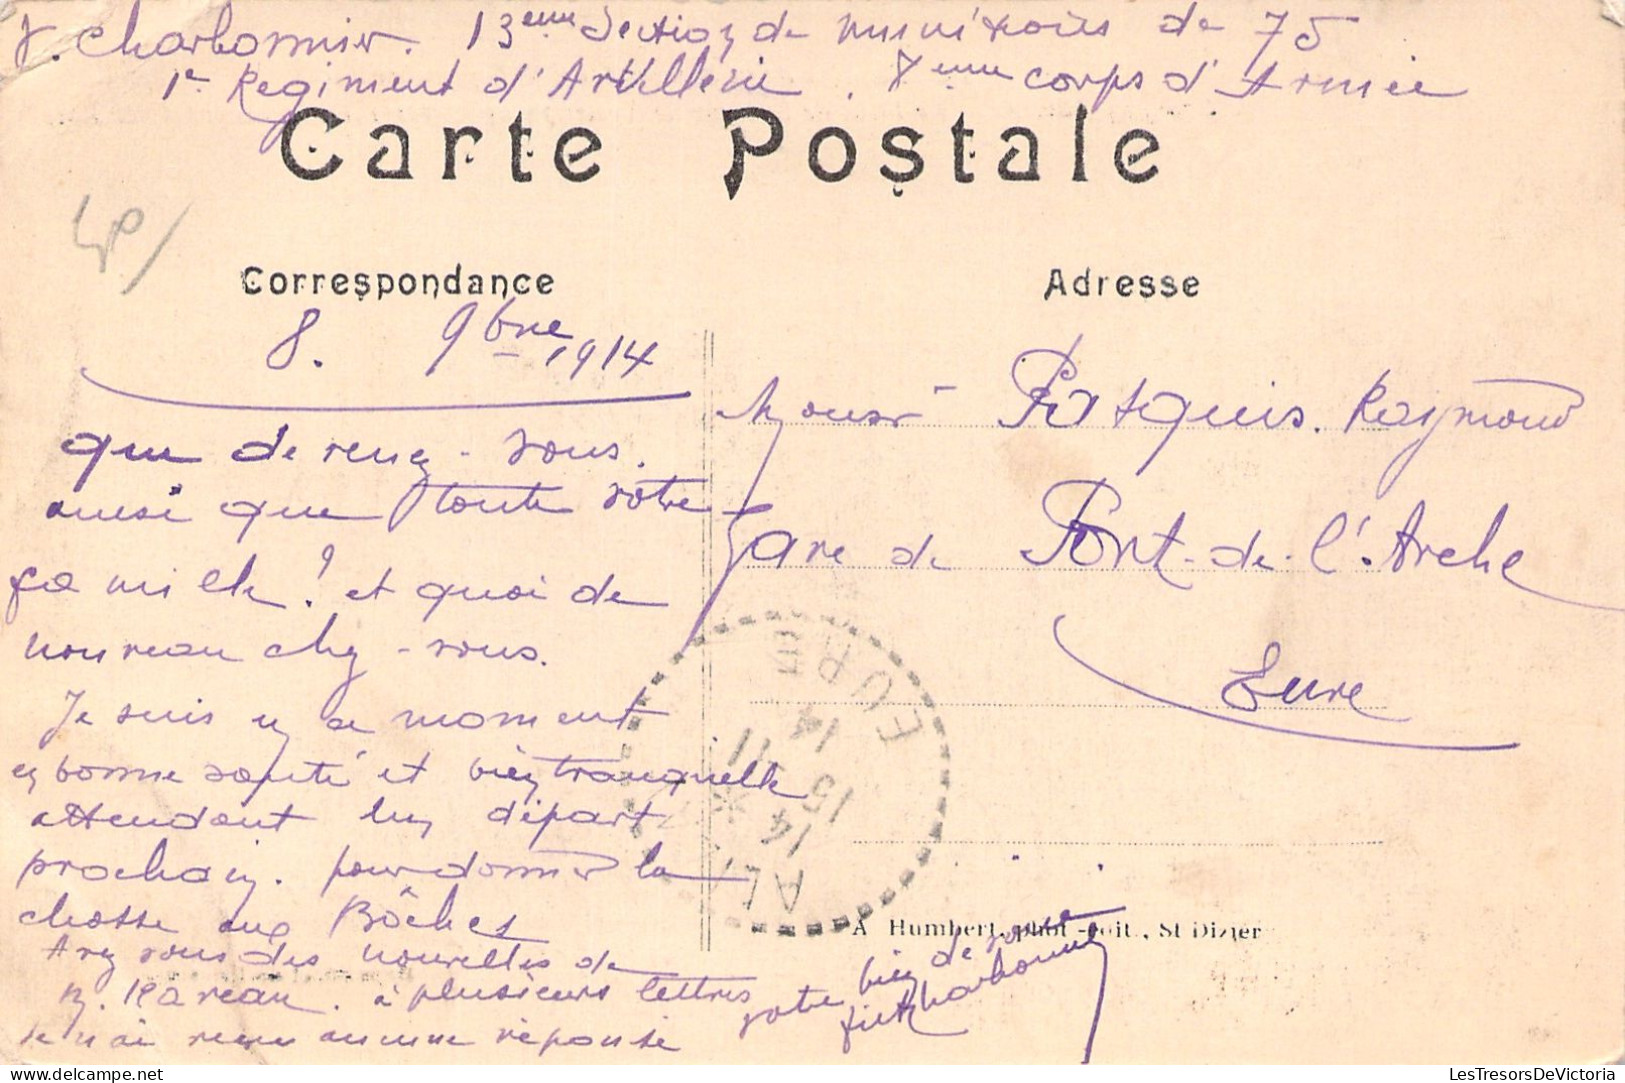 J. Charbonnier. 13eme Section de munitions de 75
1r Regiment d'Artillerie. 8eme corps d'Armée
Carte Postale
Correspondance
Adresse
8. 9bre 1914
que devenez-vous.
ainsi que toute votre
famille? et quoi de
nouveau chez-vous.
Je suis en ce moment
en bonne santé et bien tranquille
attendant un départ
prochain. pour donner la
chasse aux Bôches
Avez vous des nouvelles de
M. Rareau. à plusieurs lettres
Je n'ai reçu aucune réponse
votre bien dévoué
Charbonnier
Monsr Pasquis. Raymond
Gare de Pont-de-l'Arche
Eure
EURE
14
15 11
14
AL
A Humbert, phot.-édit., St Dizier
LesTresorsDeVictoria
delcampe.net